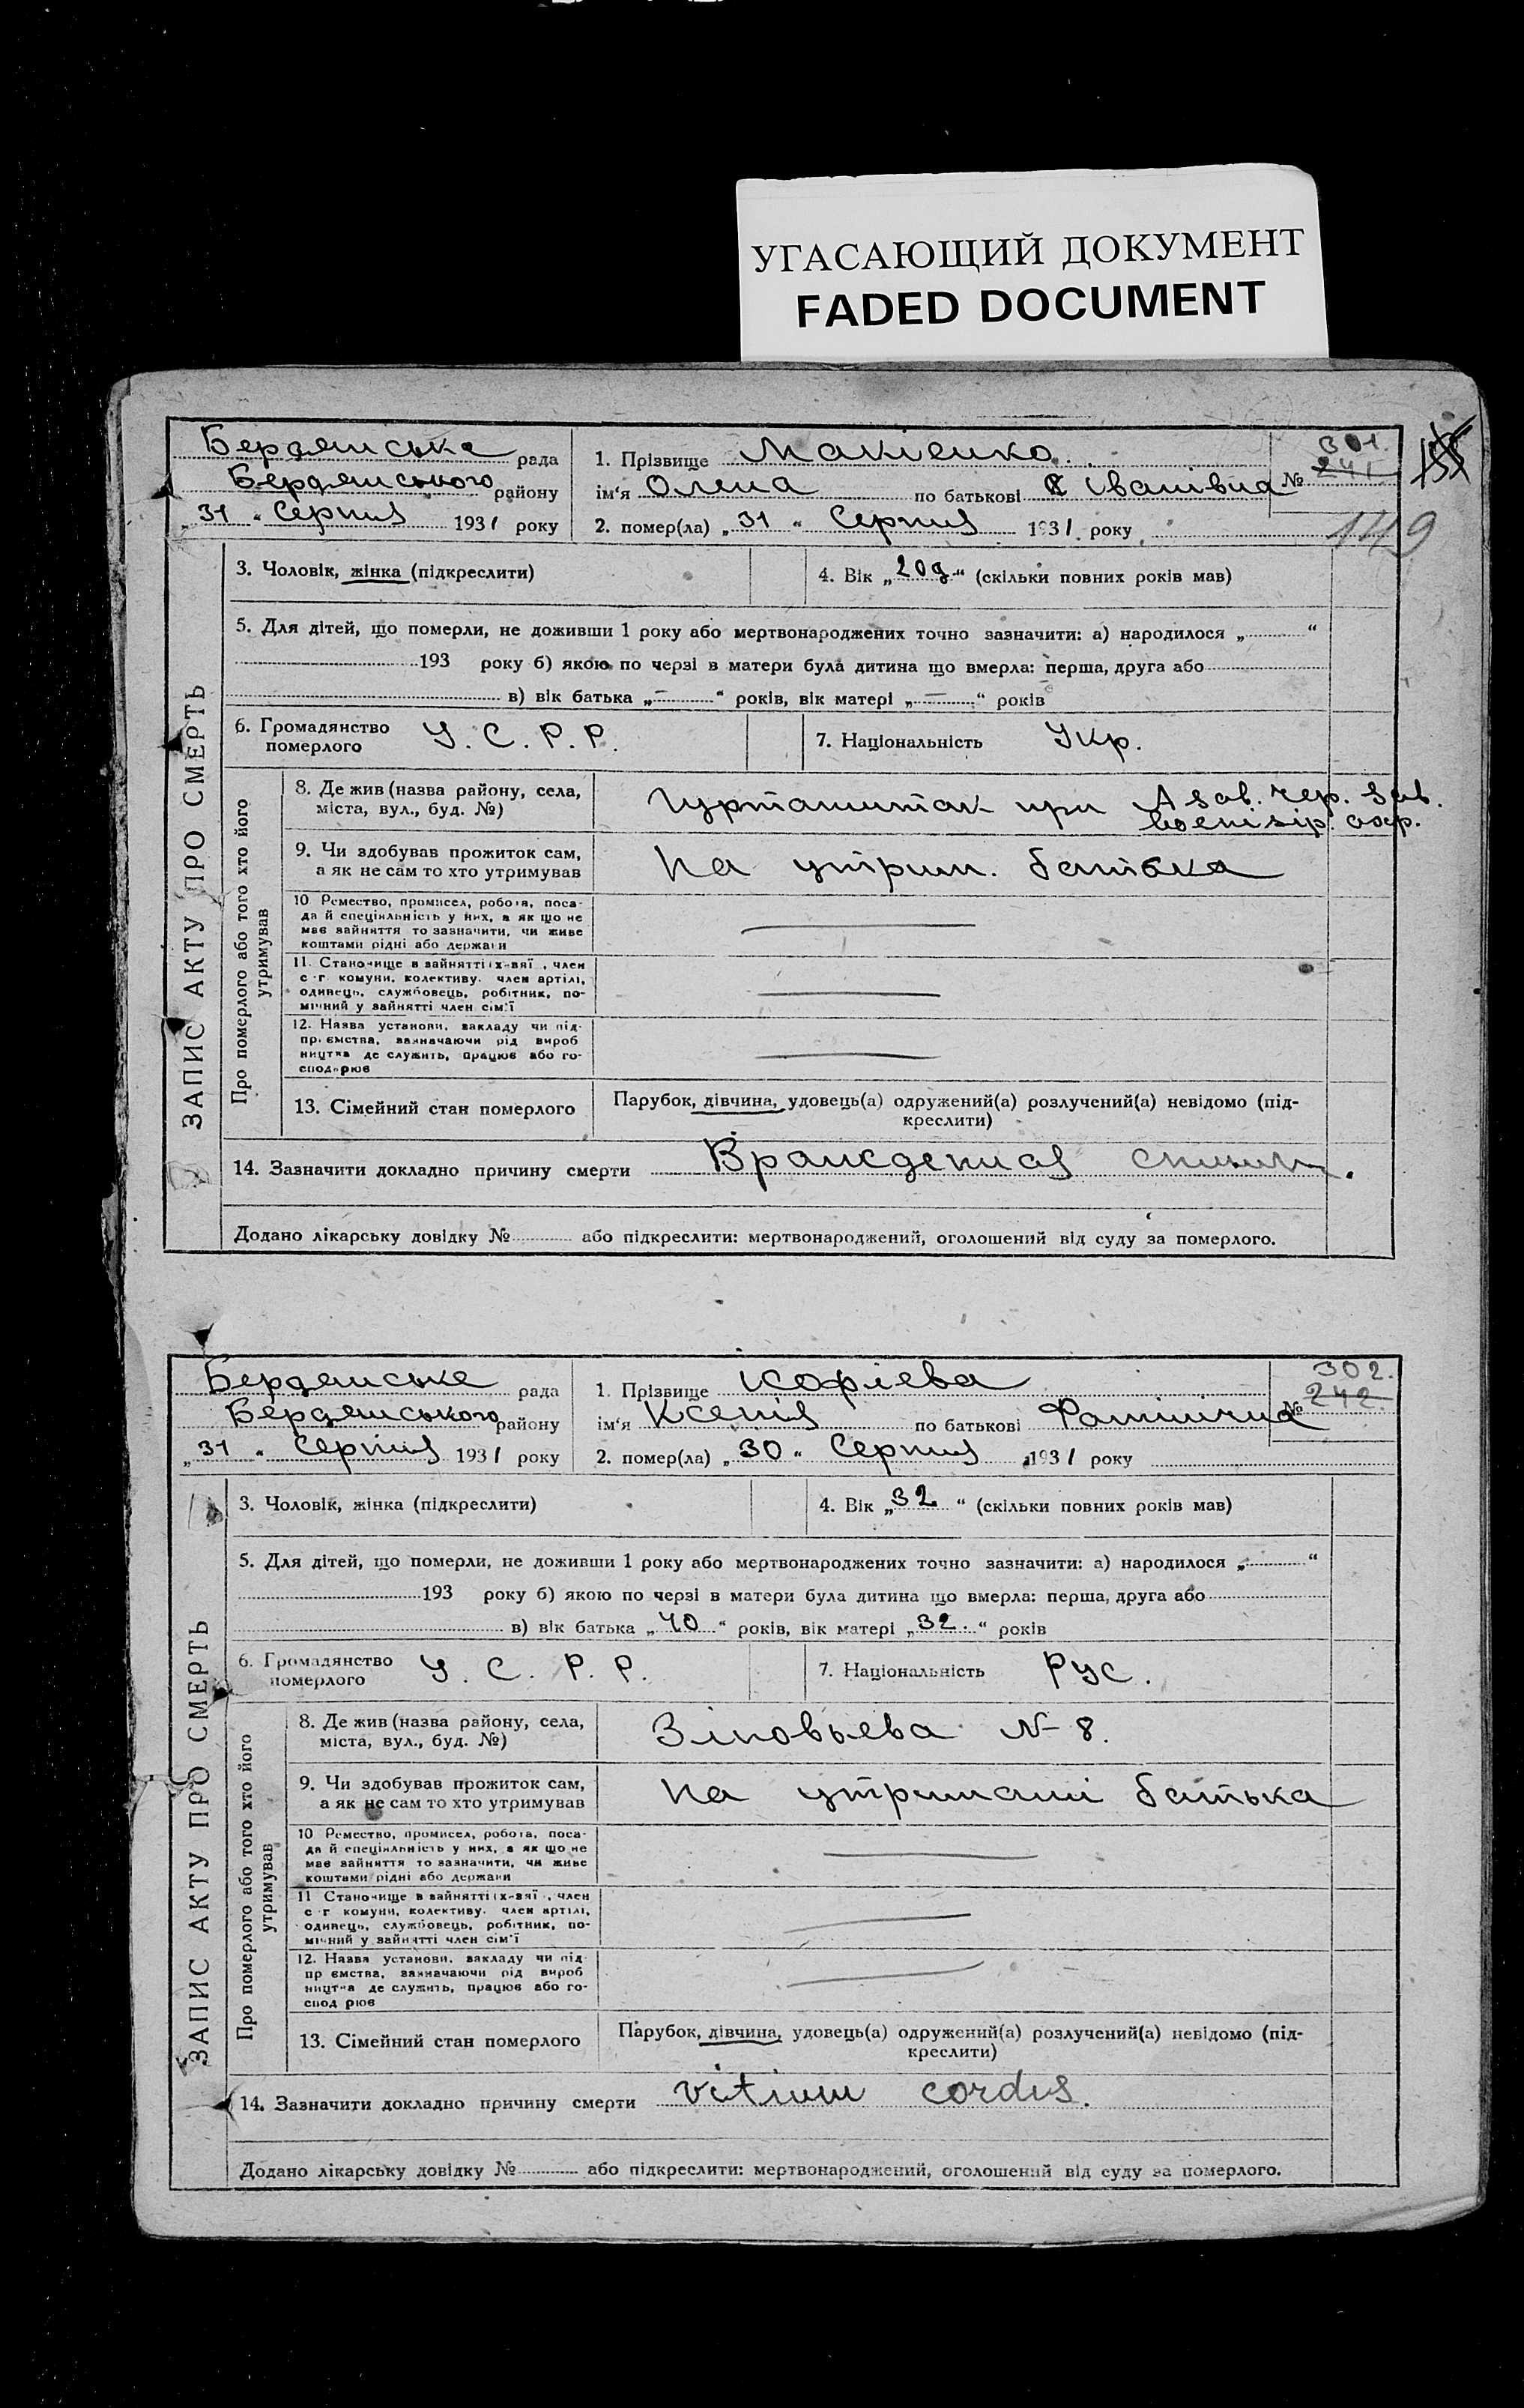 УГАСАЮЩИЙ ДОКУМЕНТ
FADED DOCUMENT
ЗАПИС АКТУ ПРО СМЕРТЬ
Бердянська рада
Бердянського району
„31“ Серпня 1931 року
1. Прізвище Макієнко
ім'я Олена по батькові Іванівна
2. помер(ла) „31“ Серпня 1931 року
№ 301.
241
149
3. Чоловік, жінка (підкреслити)
4. Вік „20 д“ (скільки повних років мав)
5. Для дітей, що померли, не доживши 1 року або мертвонароджених точно зазначити: а) народилося „ “
193 року б) якою по черзі в матери була дитина що вмерла: перша, друга або
в) вік батька „–“ років, вік матері „–“ років
6. Громадянство померлого У. С. Р. Р.
7. Національність Укр.
Про померлого або того хто його утримував
8. Де жив (назва району, села,
міста, вул., буд. №)
при
9. Чи здобував прожиток сам,
а як не сам то хто утримував
На утрим. батька
10 Ремество, промисел, робота, поса-
да й спеціяльність у них, а як що не
має зайняття то зазначити, чи живе
коштами рідні або держави
11. Становище в зайнятті , член
с-г комуни, колективу. член артілі,
одинець, службовець, робітник, по-
мічний у зайнятті член сім'ї
12. Назва установи, закладу чи під-
приємства, зазначаючи рід вироб
ництва де служить, працює або го-
сподарює
13. Сімейний стан померлого
Парубок, дівчина, удовець(а) одружений(а) розлучений(а) невідомо (під-
креслити)
14. Зазначити докладно причину смерти
Додано лікарську довідку № або підкреслити: мертвонароджений, оголошений від суду за померлого.
ЗАПИС АКТУ ПРО СМЕРТЬ
Бердянська рада
Бердянського району
„31“ Серпня 1931 року
1. Прізвище Кофієва
ім'я Ксенія по батькові
2. помер(ла) „30“ Серпня 1931 року
№ 302.
242.
3. Чоловік, жінка (підкреслити)
4. Вік „32“ (скільки повних років мав)
5. Для дітей, що померли, не доживши 1 року або мертвонароджених точно зазначити: а) народилося „ “
193 року б) якою по черзі в матери була дитина що вмерла: перша, друга або
в) вік батька „40“ років, вік матері „32“ років
6. Громадянство померлого У. С. Р. Р.
7. Національність Рус.
Про померлого або того хто його утримував
8. Де жив (назва району, села,
міста, вул., буд. №)
Зіновьева № 8.
9. Чи здобував прожиток сам,
а як не сам то хто утримував
На утриманні батька
10 Ремество, промисел, робота, поса-
да й спеціяльність у них, а як що не
має зайняття то зазначити, чи живе
коштами рідні або держави
11 Становище в зайнятті , член
с-г комуни, колективу. член артілі,
одинець, службовець, робітник, по-
мічний у зайнятті член сім'ї
12. Назва установи, закладу чи під-
приємства, зазначаючи рід вироб
ництва де служить, працює або го-
сподарює
13. Сімейний стан померлого
Парубок, дівчина, удовець(а) одружений(а) розлучений(а) невідомо (під-
креслити)
14. Зазначити докладно причину смерти vitium cordis.
Додано лікарську довідку № або підкреслити: мертвонароджений, оголошений від суду за померлого.